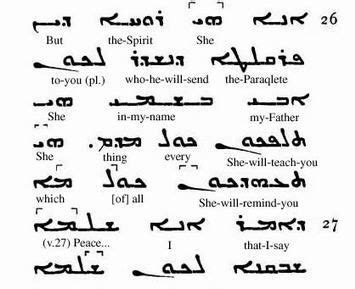 26 ܐܢܐ ܗܝ ܪܘܚܐ ܕܝܢ
But the-Spirit She
ܦܪܩܠܛܐ ܕܢܫܕܪ ܠܟܘܢ
to-you (pl.) who-he-will-send the-Paraqlete
ܐܒܝ ܒܫܡܝ ܗܝ
She in-my-name my-Father
ܬܠܦܟܘܢ ܟܠ ܡܕܡ. ܗܝ
She thing every She-will-teach-you
ܬܥܗܕܟܘܢ ܟܠ ܡܐ
which [of] all She-will-remind-you
27 ܕܐܡܪ ܐܢܐ ܫܠܡܐ
(v.27) Peace... I that-I-say
ܫܒܩܢܐ ܠܟܘܢ ܫܠܡܐ